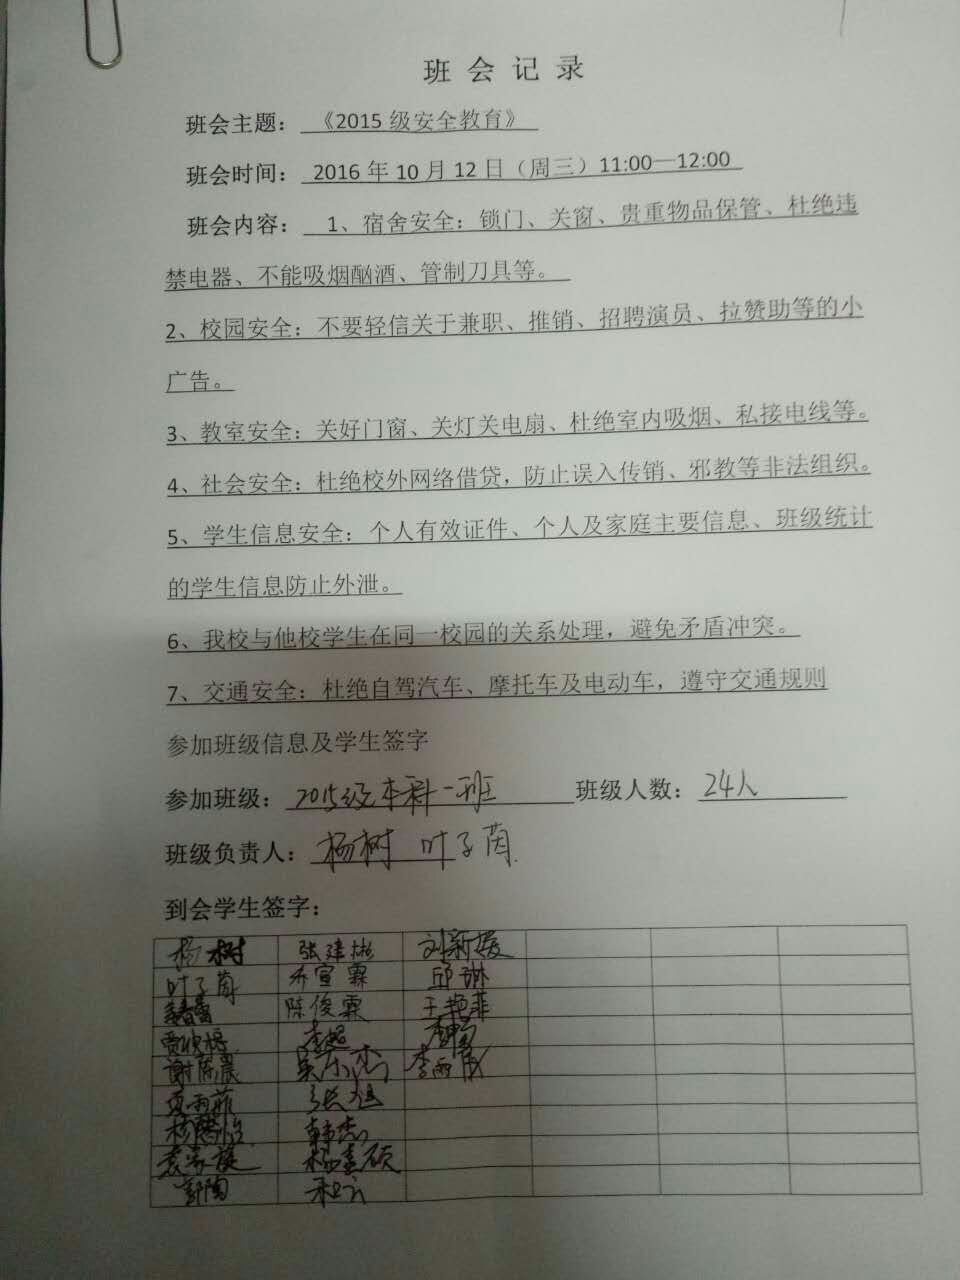 班会记录
班会主题：《2015级安全教育》
班会时间：2016年10月12日（周三）11:00—12:00
班会内容：1、宿舍安全：锁门、关窗、贵重物品保管、杜绝违
禁电器、不能吸烟酗酒、管制刀具等。
2、校园安全：不要轻信关于兼职、推销、招聘演员、拉赞助等的小
广告。
3、教室安全：关好门窗、关灯关电扇、杜绝室内吸烟、私接电线等。
4、社会安全：杜绝校外网络借贷，防止误入传销、邪教等非法组织。
5、学生信息安全：个人有效证件、个人及家庭主要信息、班级统计
的学生信息防止外泄。
6、我校与他校学生在同一校园的关系处理，避免矛盾冲突。
7、交通安全：杜绝自驾汽车、摩托车及电动车，遵守交通规则
参加班级信息及学生签字
参加班级：2015级本科一班 班级人数：24人
班级负责人：杨树 叶子茵
到会学生签字：
杨树 张建彬 刘新媛
叶子茵 乔宣霖 邱琳
陈俊霖 王艳菲
李超
谢陈晨 吴东杰 李雨晟
夏雨菲 张旭
韩杰
杨孟硕
郭陶